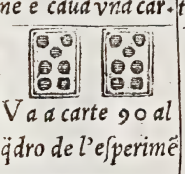 ne e caua vna car- t
V a a carte 90 al
q̃dro de l'eſperimẽ